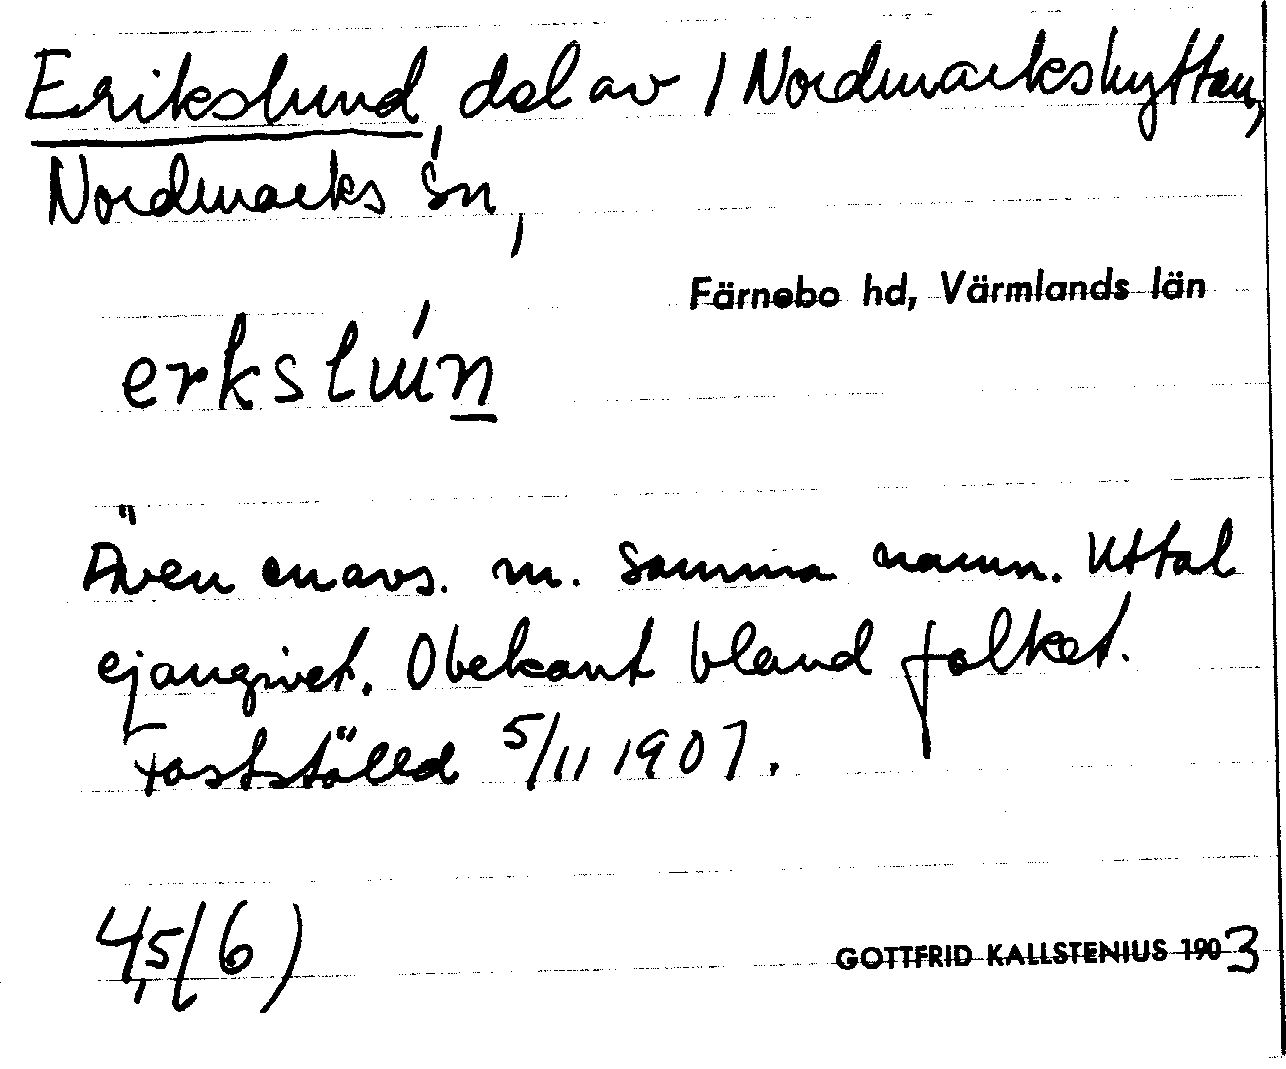 Erikslund, del av 1 Nordmarkshyttan,
Nordmarks sn,
Färnebo hd, Värmlands län
erkslún
Även en avs. m. samma namn. Uttal
ej angivet. Obekant bland folket.
Fastställd 5/11 1907.
4,5(6)
GOTTFRID KALLSTENIUS 1903